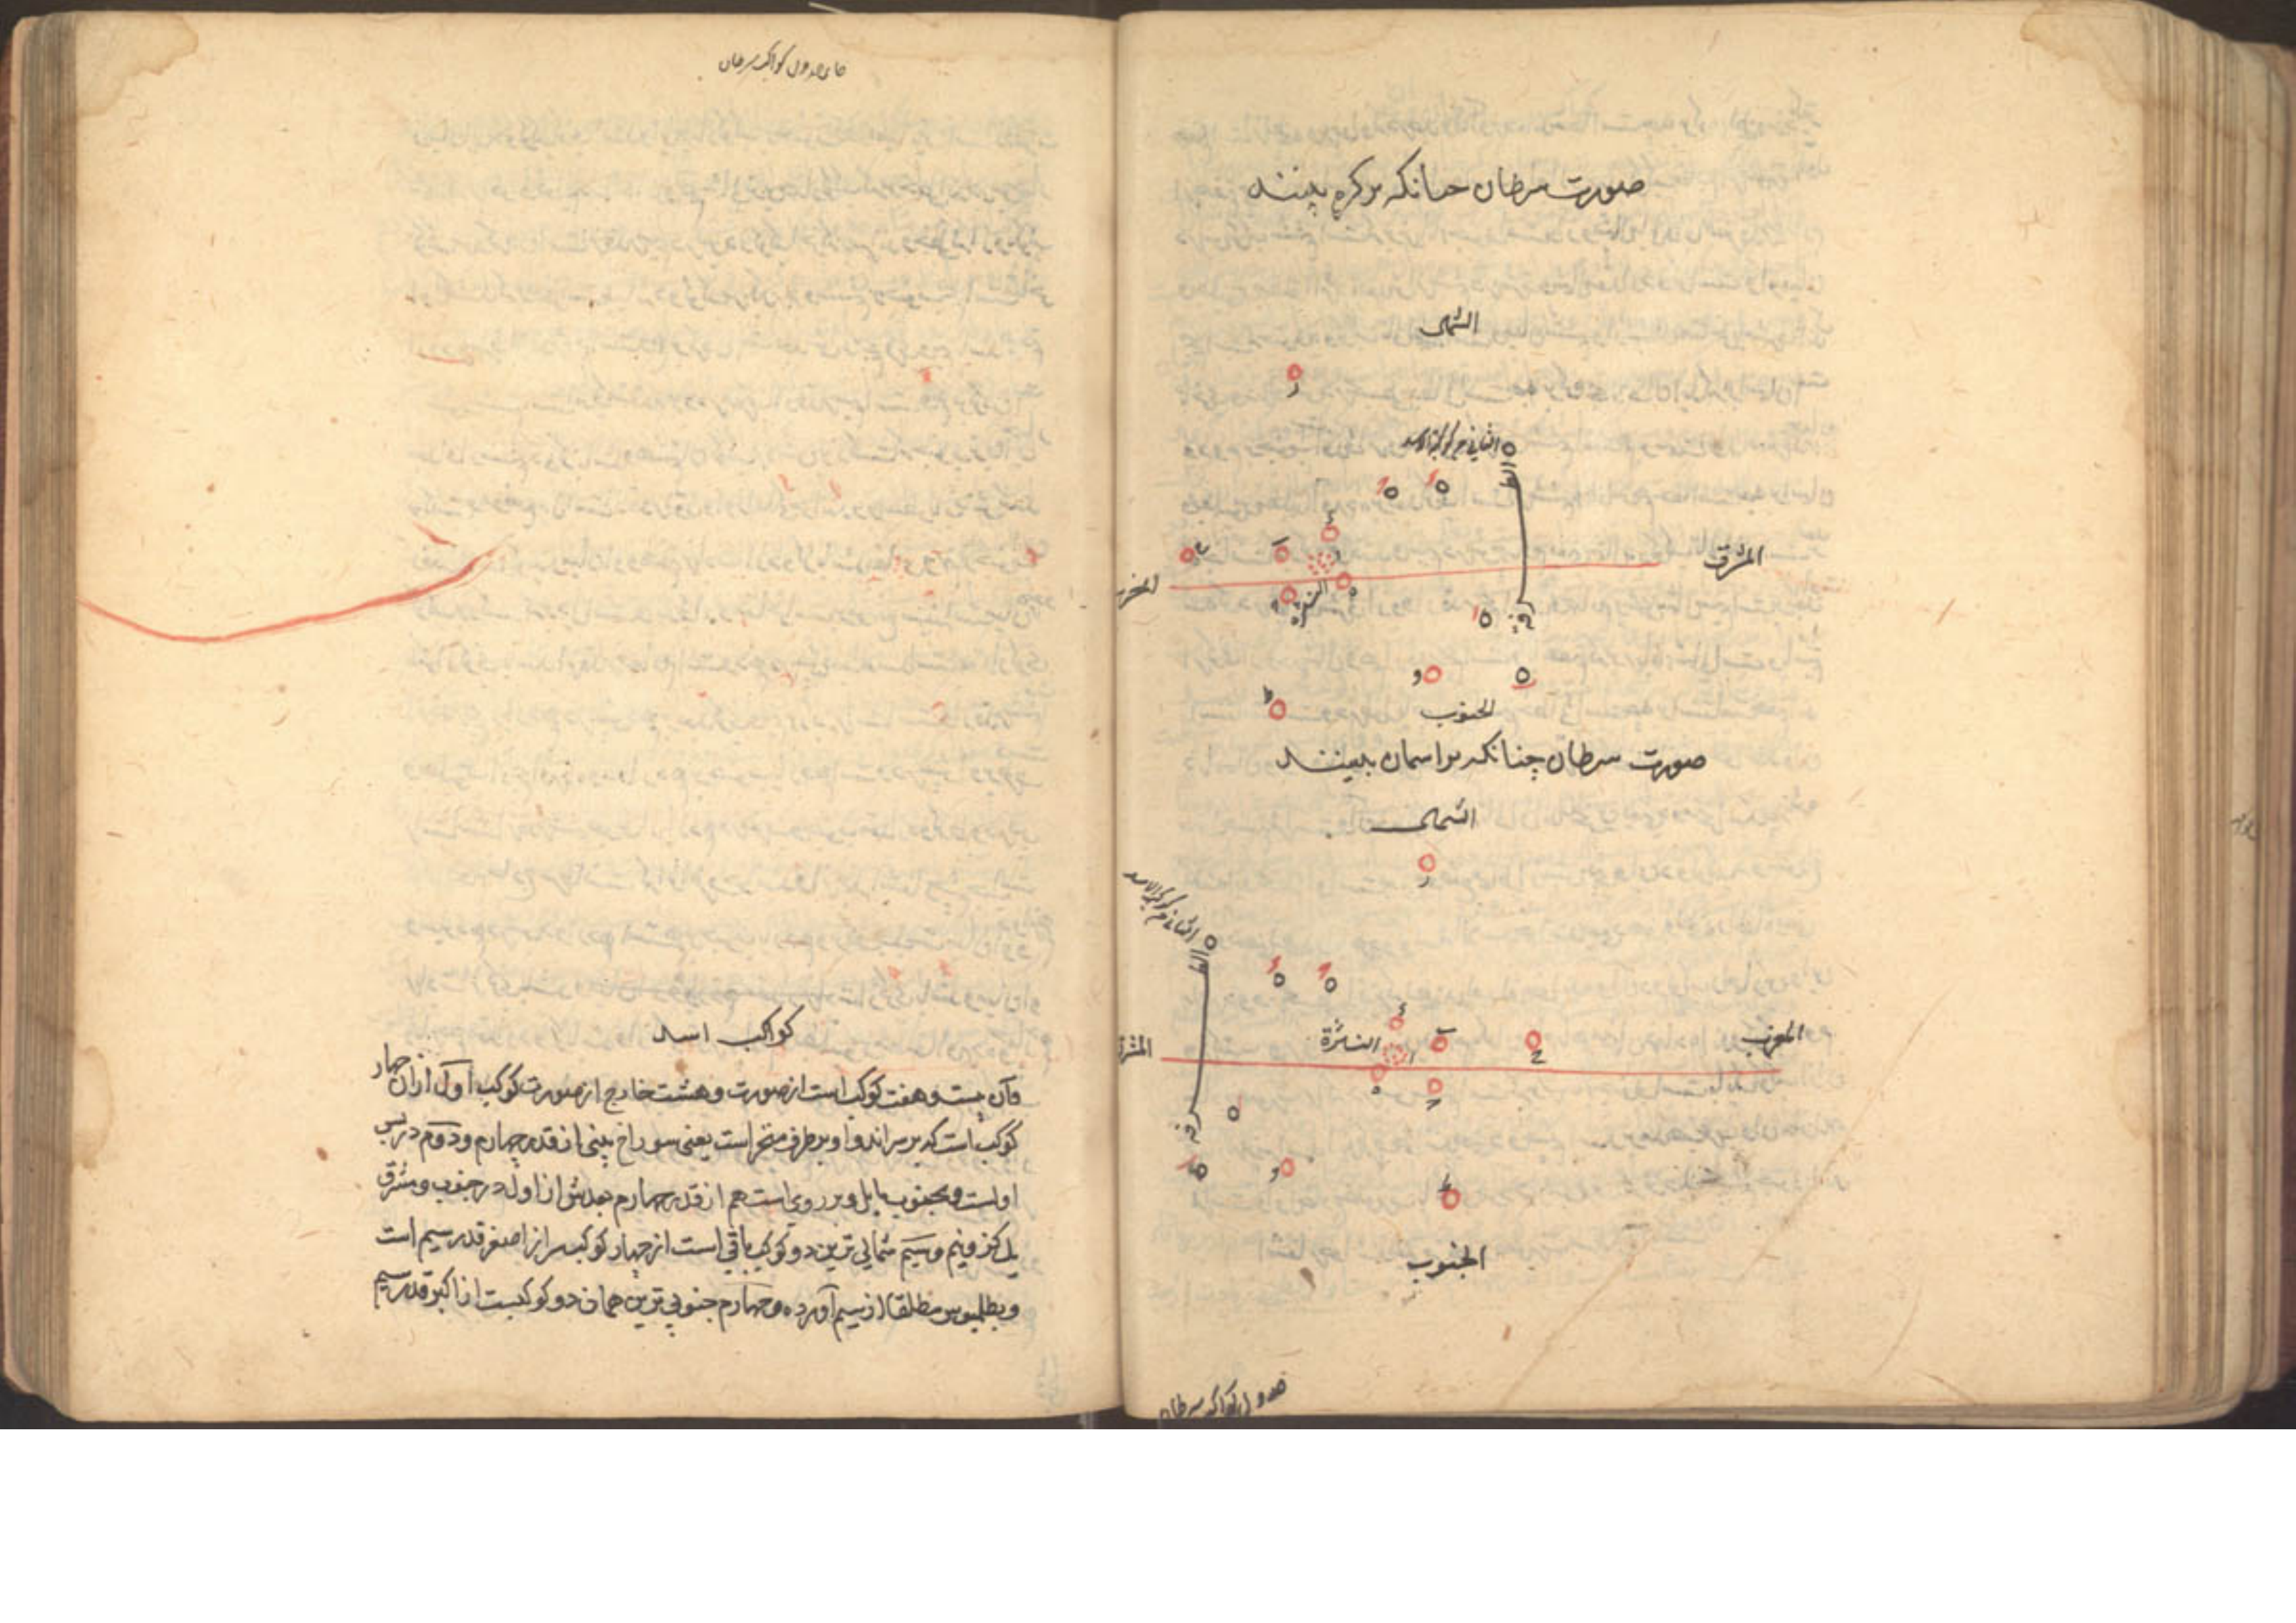 صورت سرطان چنانکه بر کره ببینند
الشمالی
ر
الثانی من کوکبة الاسد
الط
رفه
ء
ب
ح
المشرق
المغرب
النثره
ه
و
ط
الجنوب
صورت سرطان چنانکه بر اسمان ببینند
الشمالی
ر
الثانی من کوکبة الاسد
الط
رفه
ء
ب
ح
النثرة
ا
المغرب
المشرق
ه
و
ط
الجنوب
جدول کواکب سرطان
جای جدول کواکب سرطان
کواکب اسد
وآن بیست و هفت کوکب است از صورت و هشت خارج از صورت کوکب اول ازان چهار
کوکب است که بر سر اند و او بر طرف منخر است یعنی سوراخ بینی از قدر چهارم و دوم در پس
اولست و بجنوب مایل و بر روی است هم از قدر چهارم بعدش از اول در جنوب و مشرق
یک کز و نیم و سیم شمالی ترین دو کوکب باقی است از چهار کوکب سر از اصغر قدر سیم است
و بطلمیوس مطلقا از سیم آورده و چهارم جنوبی ترین همان دو کوکبست از اکبر قدر سیم